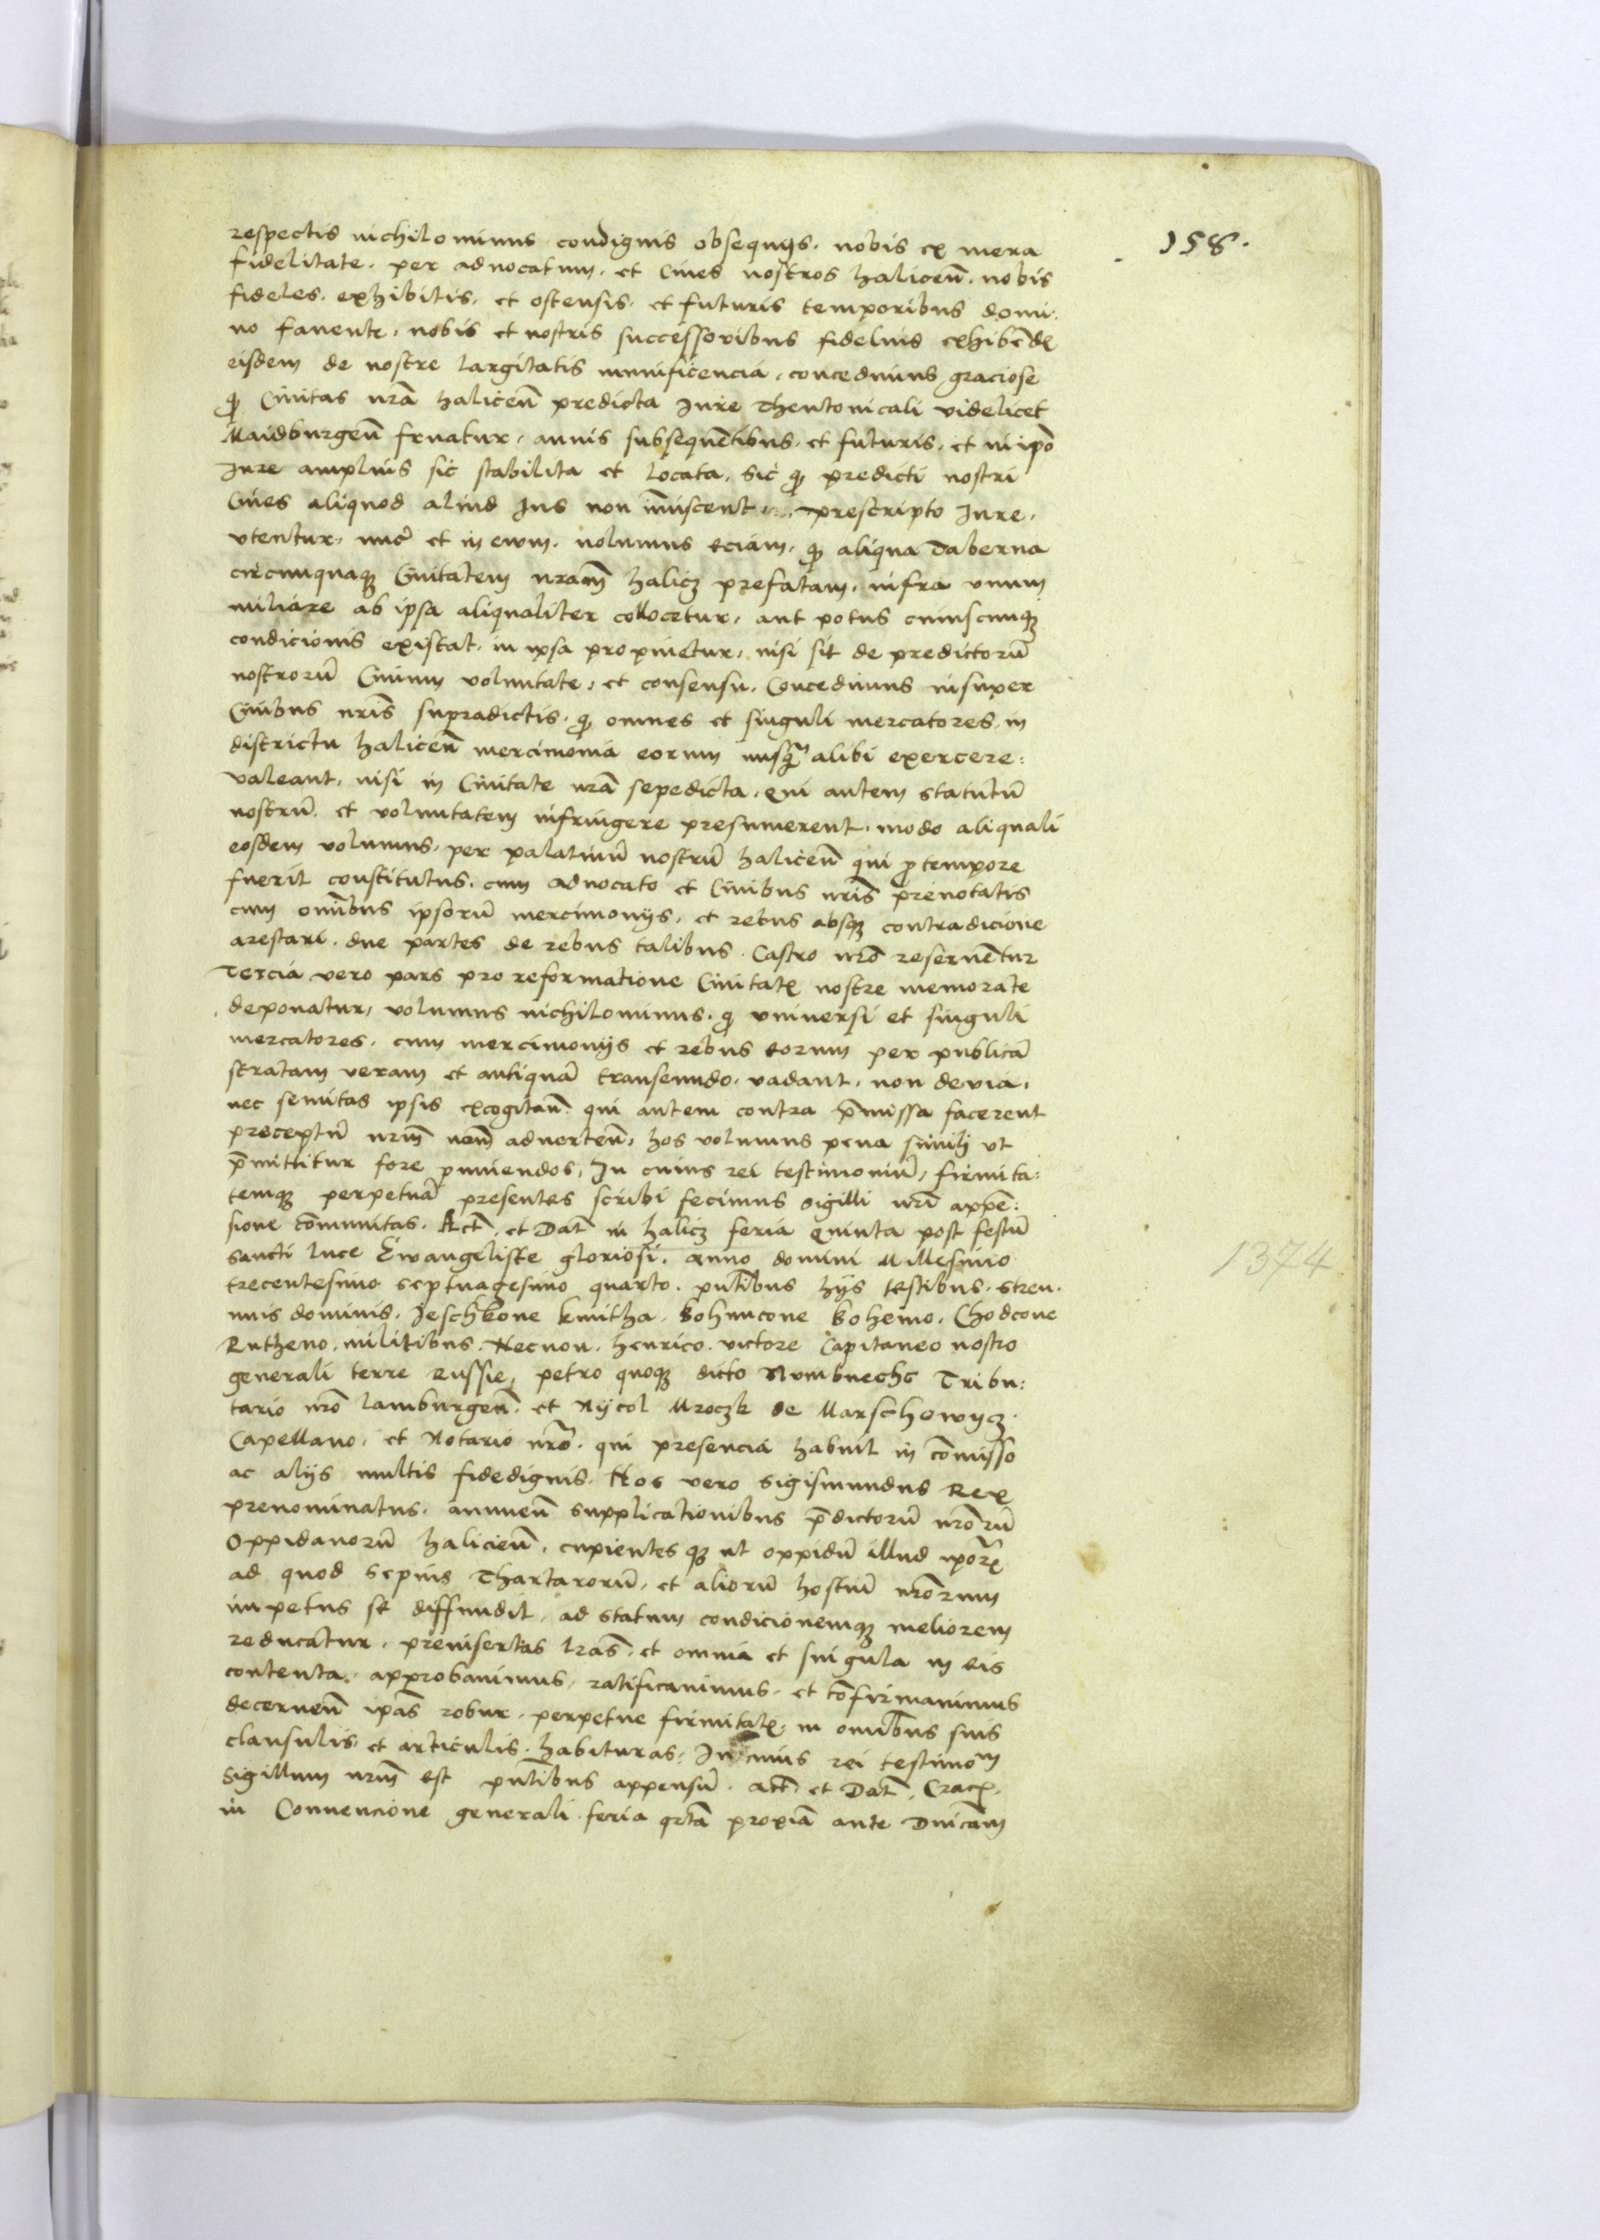 158.
respectis nichilominus condignis obsequijs. nobis ex mera
fidelitate. per aduocatum. et Ciues nostros halicen̄. nobis
fideles. exhibitis. et ostensis. et futuris temporibus domi:
no fauente. nobis et nostris successoribus fidelius exhibēdꝭ
eisdem de nostre largitatis munificencia. concedimus graciose
ꝙ Ciuitas nrā halicen̄ predicta Jure Theutonicali videlicet
Maidburgen̄ fruatur. annis subsequētibus. et futuris. et in ipō
Jure amplius sic stabilita et locata. Sic ꝙ predicti nostri
Ciues aliquod aliud Jus non īmiscent prescripto Jure.
vtentur. nūc et in ewm. nolumus eciam. ꝙ aliqua Taberna
circumquaqꝫ Ciuitatem nram̄ halicꝫ prefatam. infra vnum
miliare ab ipsa aliqualiter collocetur. aut potus cuiuscunqꝫ
condicionis existat. in ipsa propinetur. nisi sit de predictorū
nostrorū Ciuium voluntate. et consensu. Concedimus insuper
Ciuibus nrīs supradictis. ꝙ omnes et singuli mercatores in
districtu halicen̄ mercimonia eorum nusqꝫ alibi exercere:
valeant. nisi in Ciuitate nrā sepedicta. Qui autem statutū
nostrū. et voluntatem infringere presumerent. modo aliquali
eosdem volumus. per palatinū nostrū halicen̄ qui ꝓ tempore
fuerit constitutus. cum aduocato et Ciuibus nrīs prenotatis
cum omībus ipsorū mercimonijs. et rebus absqꝫ contradicione
arestari. due partes de rebus talibus. Castro nrō reseruētur
Tercia vero pars pro reformatione Ciuitatꝭ nostre memorate
deponatur. volumus nichilominus. ꝙ vniuersi et singuli
mercatores. cum mercimonijs et rebus eorum per publicā
stratam veram et antiquā transeundo. vadant. non deuia.
nec semitas ipsis excogitan̄. qui autem contra p̄missa facerent
preceptū nrm̄ non̄ aduerten̄. hos volumus pena simili vt
p̄mittitur fore puniendos. In cuius rei testimoniū. firmita:
temqꝫ perpetuā presentes scribi fecimus sigilli nrī appē:
sione cōmunitas. Act̄. et Dat̄ in halicꝫ feria Quinta post festū
Sancti luce Ewangeliste gloriosi. anno domini Millesimo
trecentesimo septuagesimo quarto. pn̄tibus hijs testibus. Stren.
nuis dominis. Jeschkone kmitha. Bohunicone Bohemo. Chodcone
Rutheno. militibus. Necnon. henrico. victore Capitaneo nostro
generali terre Russie. petro quoqꝫ dicto Numbnechc Tribu:
tario nrō lamburgen̄. et Nijcol Mroczk de Marschowijcz.
Capellano. et Notario nrō. qui presencia habuit in cōmisso
ac alijs multis fidedignis. Nos vero Sigismundus Rex
prenominatus. annuen̄ supplicationibus p̄dictorū nrōrū
Oppidanorū halicien̄. cupientesqꝫ ut oppidū illud ipōrꝝ
ad quod sepius Thartarorū. et aliorū hostiū nrōrum
impetus se diffundit. ad statum condicionemqꝫ meliorem
reducatur. preinsertas lrās. et omnia et singula in eis
contenta. approbauimus. ratificauimus. et cōfirmauimus
decernen̄ ipas̄ robur. perpetue firmitatꝭ. in omībus suis
clausulis. et articulis. habituras. In cuius rei testimom̄
Sigillum nrm̄ est pn̄tibus appensū. act̄ et Dat̄. Cracꝭ.
in Conuencione generali. feria qrtā proxiā ante Dnīcam
1374